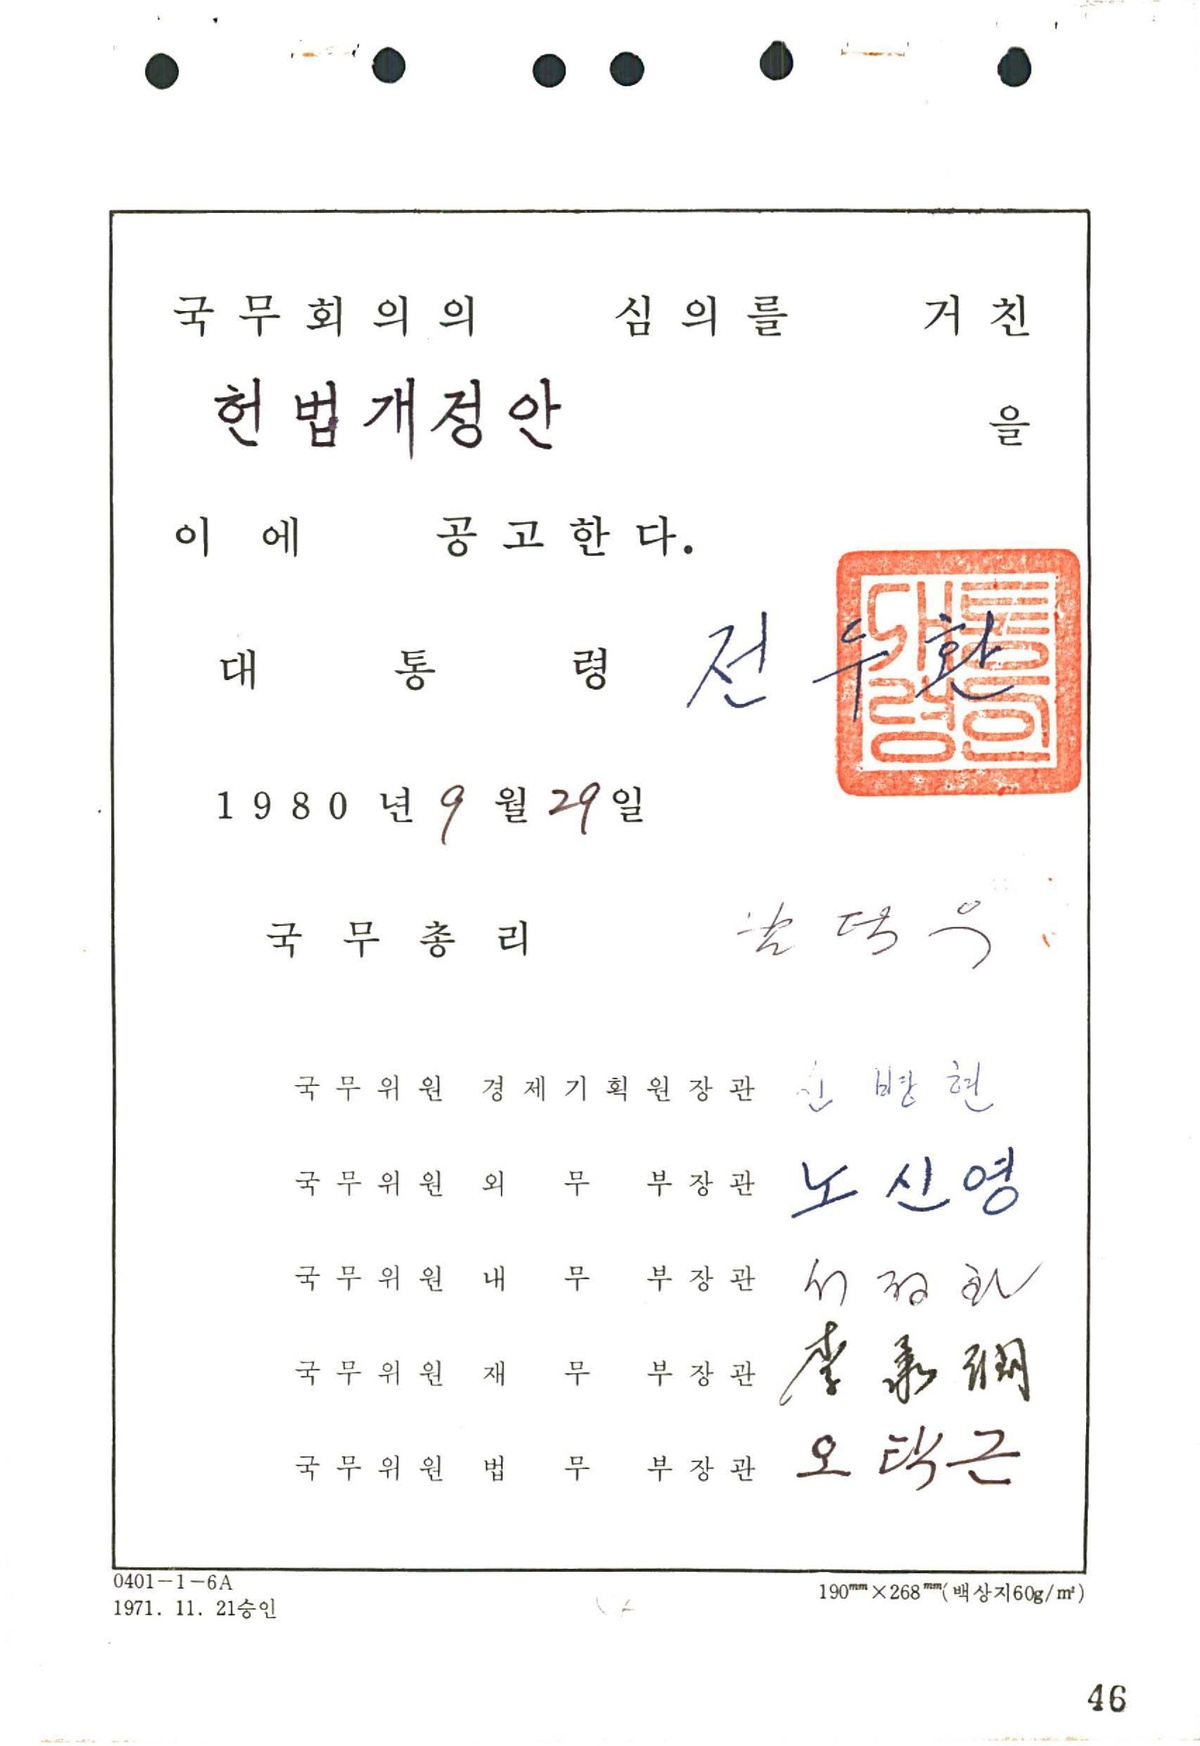 국무회의의 심의를 거친
헌법개정안 을
이에 공고한다.
대통령 전두환
대통령의인
1980년 9월 29일
국무총리 남덕우
국무위원 경제기획원장관 신병현
국무위원 외무부장관 노신영
국무위원 내무부장관 서정화
국무위원 재무부장관 李承潤
국무위원 법무부장관 오탁근
0401-1-6A
190mm×268mm(백상지60g/㎡)
1971. 11. 21승인
46